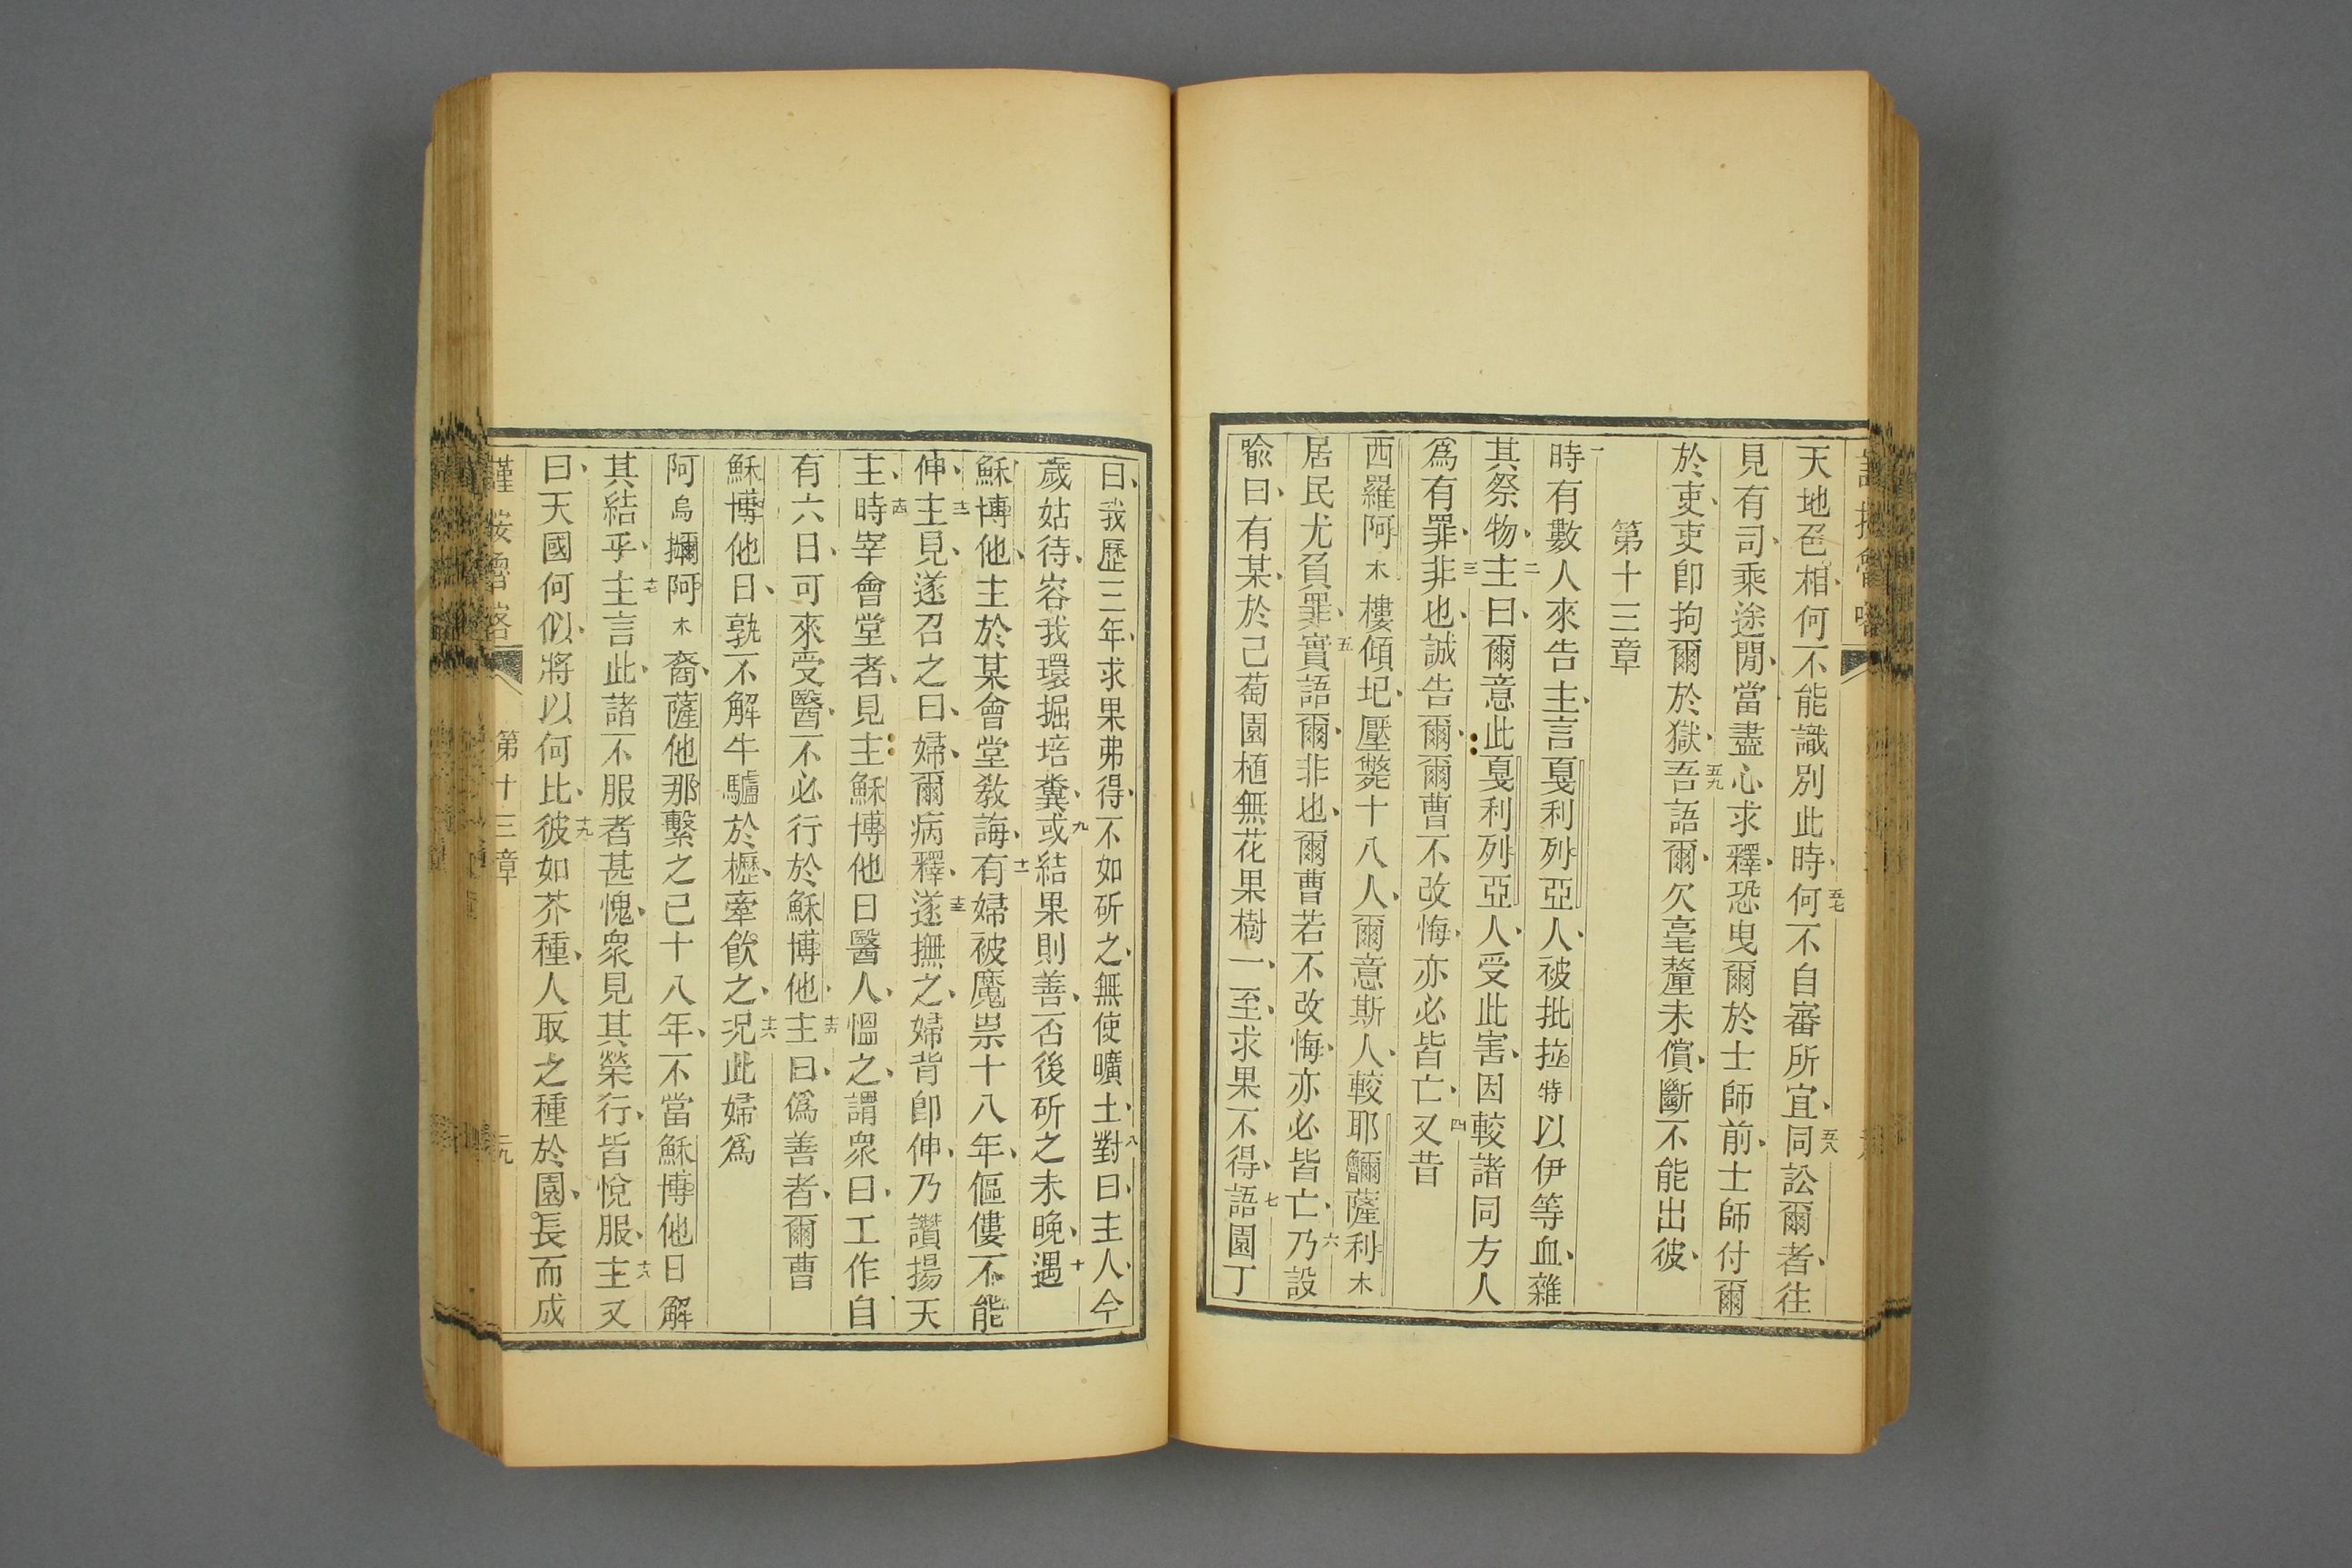 天地色相、何不能識別此時、五七何不自審所宜、五八同訟爾者、往
見有司、乘途閒、當盡心求釋、恐曳爾於士師前、士師付爾
於吏、吏卽拘爾於獄、五九吾語爾、欠毫釐未償、斷不能出彼、
第十三章
一時有數人來告主、言戛利列亞人、被批拉特以伊等血、雜
其祭物、二主曰、爾意此戛利列亞人、受此害、因較諸同方人
爲有罪、三非也、誠告爾、爾曹不改悔、亦必皆亡、四又昔
西羅阿木樓傾圮、壓斃十八人、爾意斯人、較耶䚈薩利木
居民尤負罪、五實語爾、非也、爾曹若不改悔、亦必皆亡、六乃設
喩曰、有某、於己萄園植無花果樹一、至求果不得、七語園丁
曰、我歷三年、求果弗得、不如斫之、無使曠土、八對曰、主人、今
歲姑待、容我環掘培糞、九或結果則善、否後斫之未晚、十遇
穌博他、主於某會堂敎誨、十一有婦被魔祟十八年、傴僂不能
伸、十二主見、遂召之曰、婦、爾病釋、十三遂撫之、婦背卽伸、乃讚揚天
主、十四時宰會堂者、見主穌博他日醫人、慍之、謂衆曰、工作自
有六日、可來受醫、不必行於穌博他、十五主曰、僞善者、爾曹
穌博他日、孰不解牛驢於櫪、牽飮之、十六況此婦爲
阿烏拉阿木裔、薩他那繫之已十八年、不當穌博他日解
其結乎、十七主言此、諸不服者甚愧、衆見其榮行、皆悅服、十八主又
曰、天國何似、將以何比、十九彼如芥種、人取之種於園、長而成
謹按魯喀 第十三章 二九